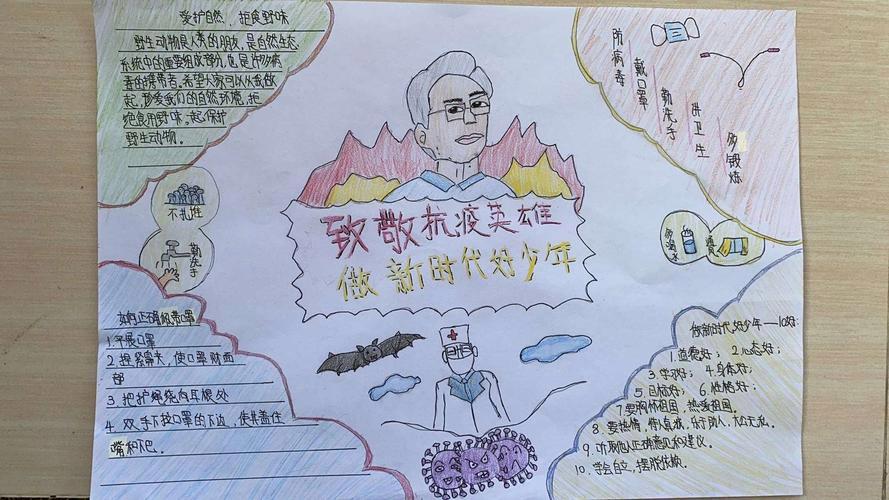 爱护自然、拒食野味
野生动物是人类的朋友,是自然生态
系统中的重要组成部分,也是许多病
毒的携带者。希望大家可以从我做
起,珍爱我们的自然环境,拒
绝食用野味,一起保护
野生动物。
防病毒
戴口罩
勤洗手
讲卫生
多锻炼
不扎堆
勤洗手
致敬抗疫英雄
做新时代好少年
多喝水
如何正确佩带口罩
1.平展口罩
2.捏紧鼻夹,使口罩贴面
部
3.把护绳绕在耳根处
4.双手下拉口罩的下边,使其盖住
嘴和下巴。
做新时代好少年——10好:
1.道德好; 2.心态好;
3.学习好; 4.身体好;
5.目标好; 6.性格好;
7.要胸怀祖国,热爱祖国。
8.要热情,待人真诚,乐于助人,大公无私。
9.听取他人正确意见和建议。
10.学会自立,摆脱依赖。